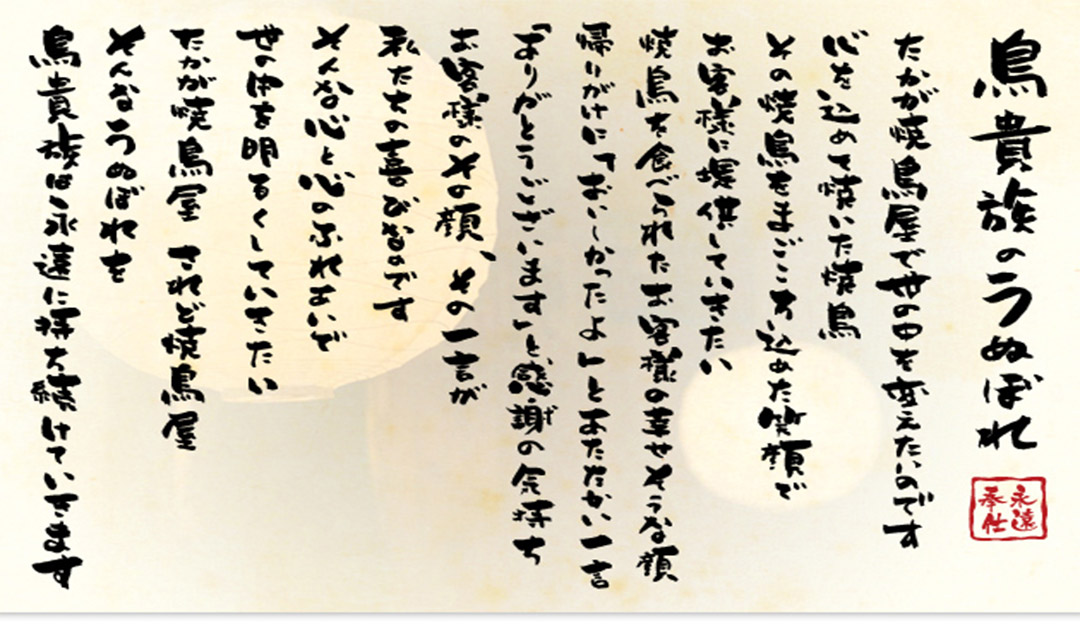 鳥貴族のうぬぼれ
永遠
奉仕
たかが焼鳥屋で世の中を変えたいのです
心を込めて焼いた焼鳥
その焼鳥をまごころ込めた笑顔で
お客様に提供していきたい
焼鳥を食べられたお客様の幸せそうな顔
帰りがけに「おいしかったよ」とあたたかい一言
「ありがとうございます」と、感謝の気持ち
お客様のその顔、その一言が
私たちの喜びなのです
そんな心と心のふれあいで
世の中を明るくしていきたい
たかが焼鳥屋 されど焼鳥屋
そんなうぬぼれを
鳥貴族は永遠に持ち続けていきます